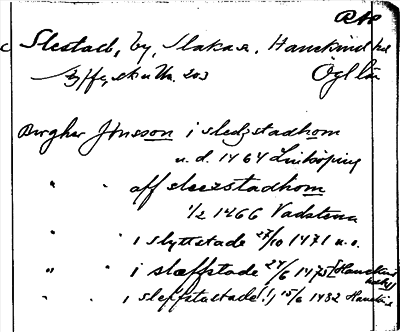 RAP
Slestad, by, Slaka sn. Hanekind hd
Ögl län
Birgher Jönsson i sledzstadhom
u. d. 1464 Linköping
" " aff sleezstadhom
1/2 1466 Vadstena
" " i slyttstade 27/10 1471 u. o.
" " i slæffstade 27/6 1475 [Hanekinds
" " i sleffstadade! 15/6 1482 Hanekind